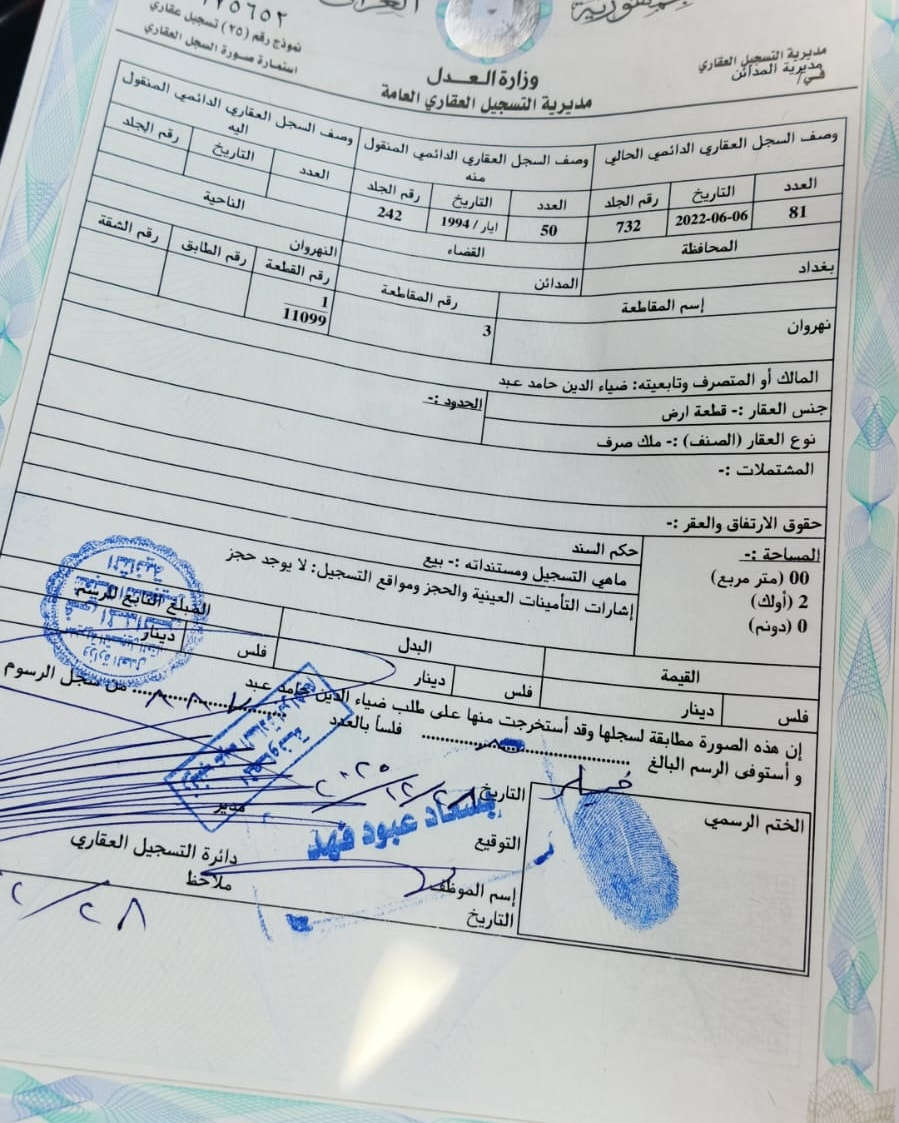 جمهورية العراق
وزارة العدل
مديرية التسجيل العقاري العامة
مديرية التسجيل العقاري
في/ مديرية المدائن
نموذج رقم (٢٥) تسجيل عقاري
استمارة صورة السجل العقاري
وصف السجل العقاري الدائمي الحالي
وصف السجل العقاري الدائمي المنقول منه
وصف السجل العقاري الدائمي المنقول اليه
العدد التاريخ رقم الجلد العدد التاريخ رقم الجلد العدد التاريخ رقم الجلد
81 2022-06-06 732 50 ايار / 1994 242
المحافظة القضاء الناحية
بغداد المدائن النهروان
إسم المقاطعة رقم المقاطعة رقم القطعة رقم الطابق رقم الشقة
نهروان 3 1
11099
المالك أو المتصرف وتابعيته: ضياء الدين حامد عبد
جنس العقار :- قطعة ارض
الحدود :-
نوع العقار (الصنف) :- ملك صرف
المشتملات :-
حقوق الارتفاق والعقر :-
المساحة :-
00 (متر مربع)
2 (أولك)
0 (دونم)
حكم السند
ماهي التسجيل ومستنداته :- بيع
إشارات التأمينات العينية والحجز ومواقع التسجيل: لا يوجد حجز
القيمة البدل المبلغ التابع للرسم
فلس دينار فلس دينار فلس دينار
إن هذه الصورة مطابقة لسجلها وقد أستخرجت منها على طلب ضياء الدين حامد عبد
و أستوفى الرسم البالغ فلسأ بالعدد من سجل الرسوم
الختم الرسمي
التاريخ
التوقيع
إسم الموظف
التاريخ
مدير
دائرة التسجيل العقاري
ملاحظ
عبود فهد